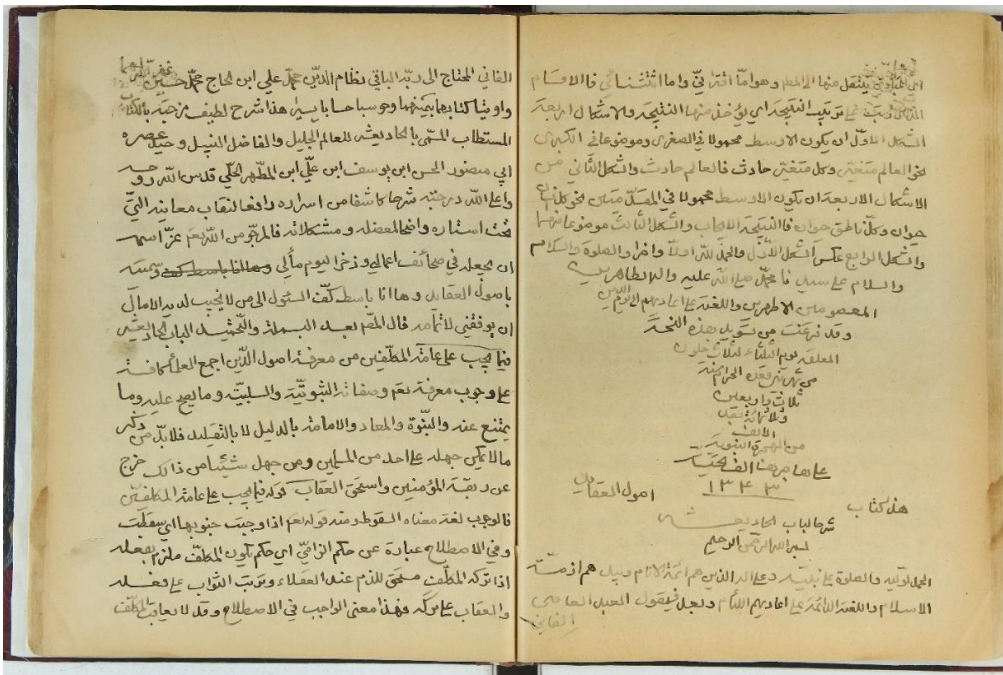 ينتقل منها الى المط وهو اما اقترانيّ واما استثنائي فالاقسام
على ترتيب النتيجة اي يؤخذ منها النتيجة والاشكال اربعة
الشكل الاوّل ان يكون الاوسط محمولا في الصغرى وموضوعا في الكبرى
نحو العالم متغيّر وكل متغيّر حادث فالعالم حادث والشكل الثّاني من
الاشكال الاربعة ان يكون الاوسط محمولا في المقدّمتين نحو كل انسان
حيوان وكلّ ناطق حيوان فالنتيجة الايجاب والشكل الثالث موضوعا فيهما
والشكل الرابع عكس الشكل الاوّل والحمد للّه اولاً واخرا والصلوة والسلام
والسلام على سيدنا محمّد صلى اللّه عليه واله الطاهرين
المعصومين الاطهرين واللعنة على اعاديهم الى يوم الدين
وقد فرغت من تسويد هذه النسخة
المعلقة يوم الثلثاء لثلاث خلون
من شهر ذي قعدة الحرام سنة
ثلاث واربعين
وثلاثمائة بعد
الالف
من الهجرة النبوية
على هاجرها الف التحية
١٣٤٣
هذا كتاب اصول العقايد
شرح الباب الحاديعشر
بسم اللّه الرّحمن الرّحيم
الحمد لوليّه والصلوة على نبيّه وعلى اله الذين هم ائمّة الانام وبهم هم ازمّة
الاسلام واللعنة الدّائمة على اعاديهم اللئام وبعد فيقول العبد العاصي
الفاني
الفاني المحتاج الى ربّه الباقي نظام الدّين محمّد علي ابن الحاج محمّد حسين غفر اللّه لهما
واوتيا كتابهما بيمينهما وحوسبا حسابا يسيرا هذا شرح لطيف مزجته بالكتاب
المستطاب المسمّى بالحاديعشر للعالم الجليل والفاضل النبيل وحيد عصره
ابي منصور الحسن ابن يوسف ابن عليّ ابن المطّهر الحلّي قدس اللّه روحه
واعلى اللّه درجته شرحا كاشفا من اسراره رافعا لنقاب معانيه التي
تحت استاره واضحا لمعضله ومشكلاته فالمرجّو من اللّه تعم عزّ اسمه
ان يجعله في صحائف اعمالي وذخرا ليوم مأبي وسمّيته
باصول العقايد وها انا باسط كفّ السئول الى من لا يخيب لديه الامال
ان يوفقني لاتمامه قال المصّ بعد البسملة والتّحميد الباب الحاديعشر
فيما يجب على عامّة المكلّفين من معرفة اصول الدّين اجمع العلمأ كافة
على وجوب معرفة اللّه تعم وصفاته الثبوتيّة والسلبيّة وما يصح عليه وما
يمتنع عنه والنبّوة والمعاد والامامة بالدليل لا بالتقليد فلا بدّ من ذكر
مالا يمكن جهله على احد من المسلمين ومن جهل شيئا من ذالك خرج
عن ربقة المؤمنين واستحق العقاب قوله فيما يجب على عامة المكلّفين
فالوجوب لغة معناه السقوط ومنه قوله تعم اذا وجبت جنوبها اي سقطت
وفي الاصطلاح عبارة عن حكم الزاميّ اي حكم يكون المكلّف ملزم بفعله
اذا تركه المكلّف مستحق للذم عند العقلاء وترتب الثواب على فعله
والعقاب على تركه فهذا معنى الواجب في الاصطلاح وقد لا يعاقب المكلّف